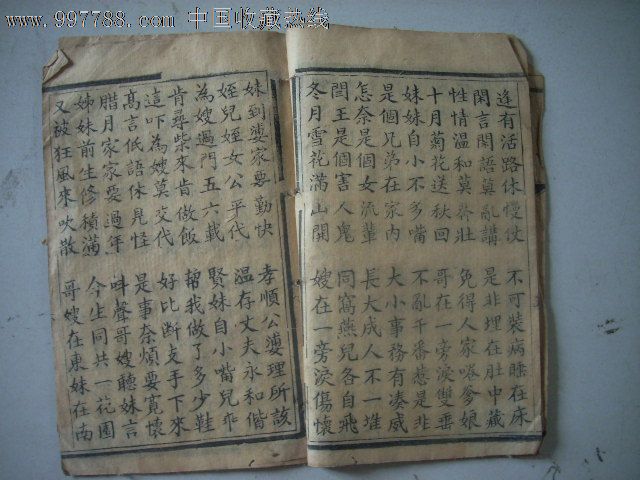 www.997788.com 中国收藏热线
逢有活路休慢仗 不可裝病睡在床
閑言閑語莫亂講 是非埋在肚中藏
性情溫和莫誇壯 免得人家啳爹娘
十月菊花送秋回 哥在一旁淚雙垂
妹妹自小不多嘴 不亂千番惹是非
是個兄弟在家內 大小事務有湊威
怎奈是個女流輩 長大成人不一堆
閆王是個害人鬼 同窩燕兒各自飛
冬月雪花滿山開 嫂在一旁淚傷懷
妹到婆家要勤快 孝順公婆理所該
姪兒姪女公平代 溫存丈夫永和偕
為嫂過門五六載 賢妹自小嘴兒乖
肯尋柴來肯做飯 幫我做了多少鞋
這吓為嫂莫交代 好比断支手下來
高言低語休見怪 是事奈煩要寬懷
腊月家家要過年 呌聲哥嫂聽妹言
姊妹前生修積滿 今生同共一花園
又被狂風來吹散 哥嫂在東妹在南